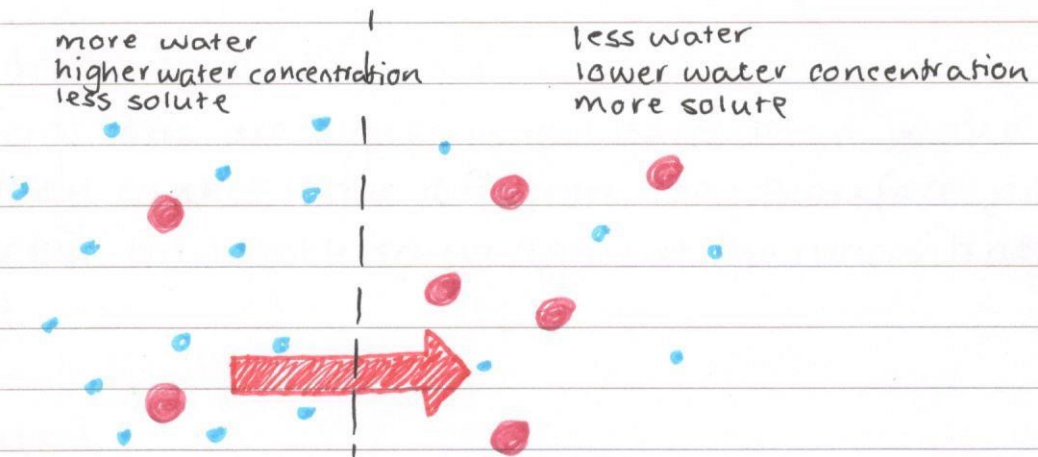 more water
higher water concentration
less solute
less water
lower water concentration
more solute